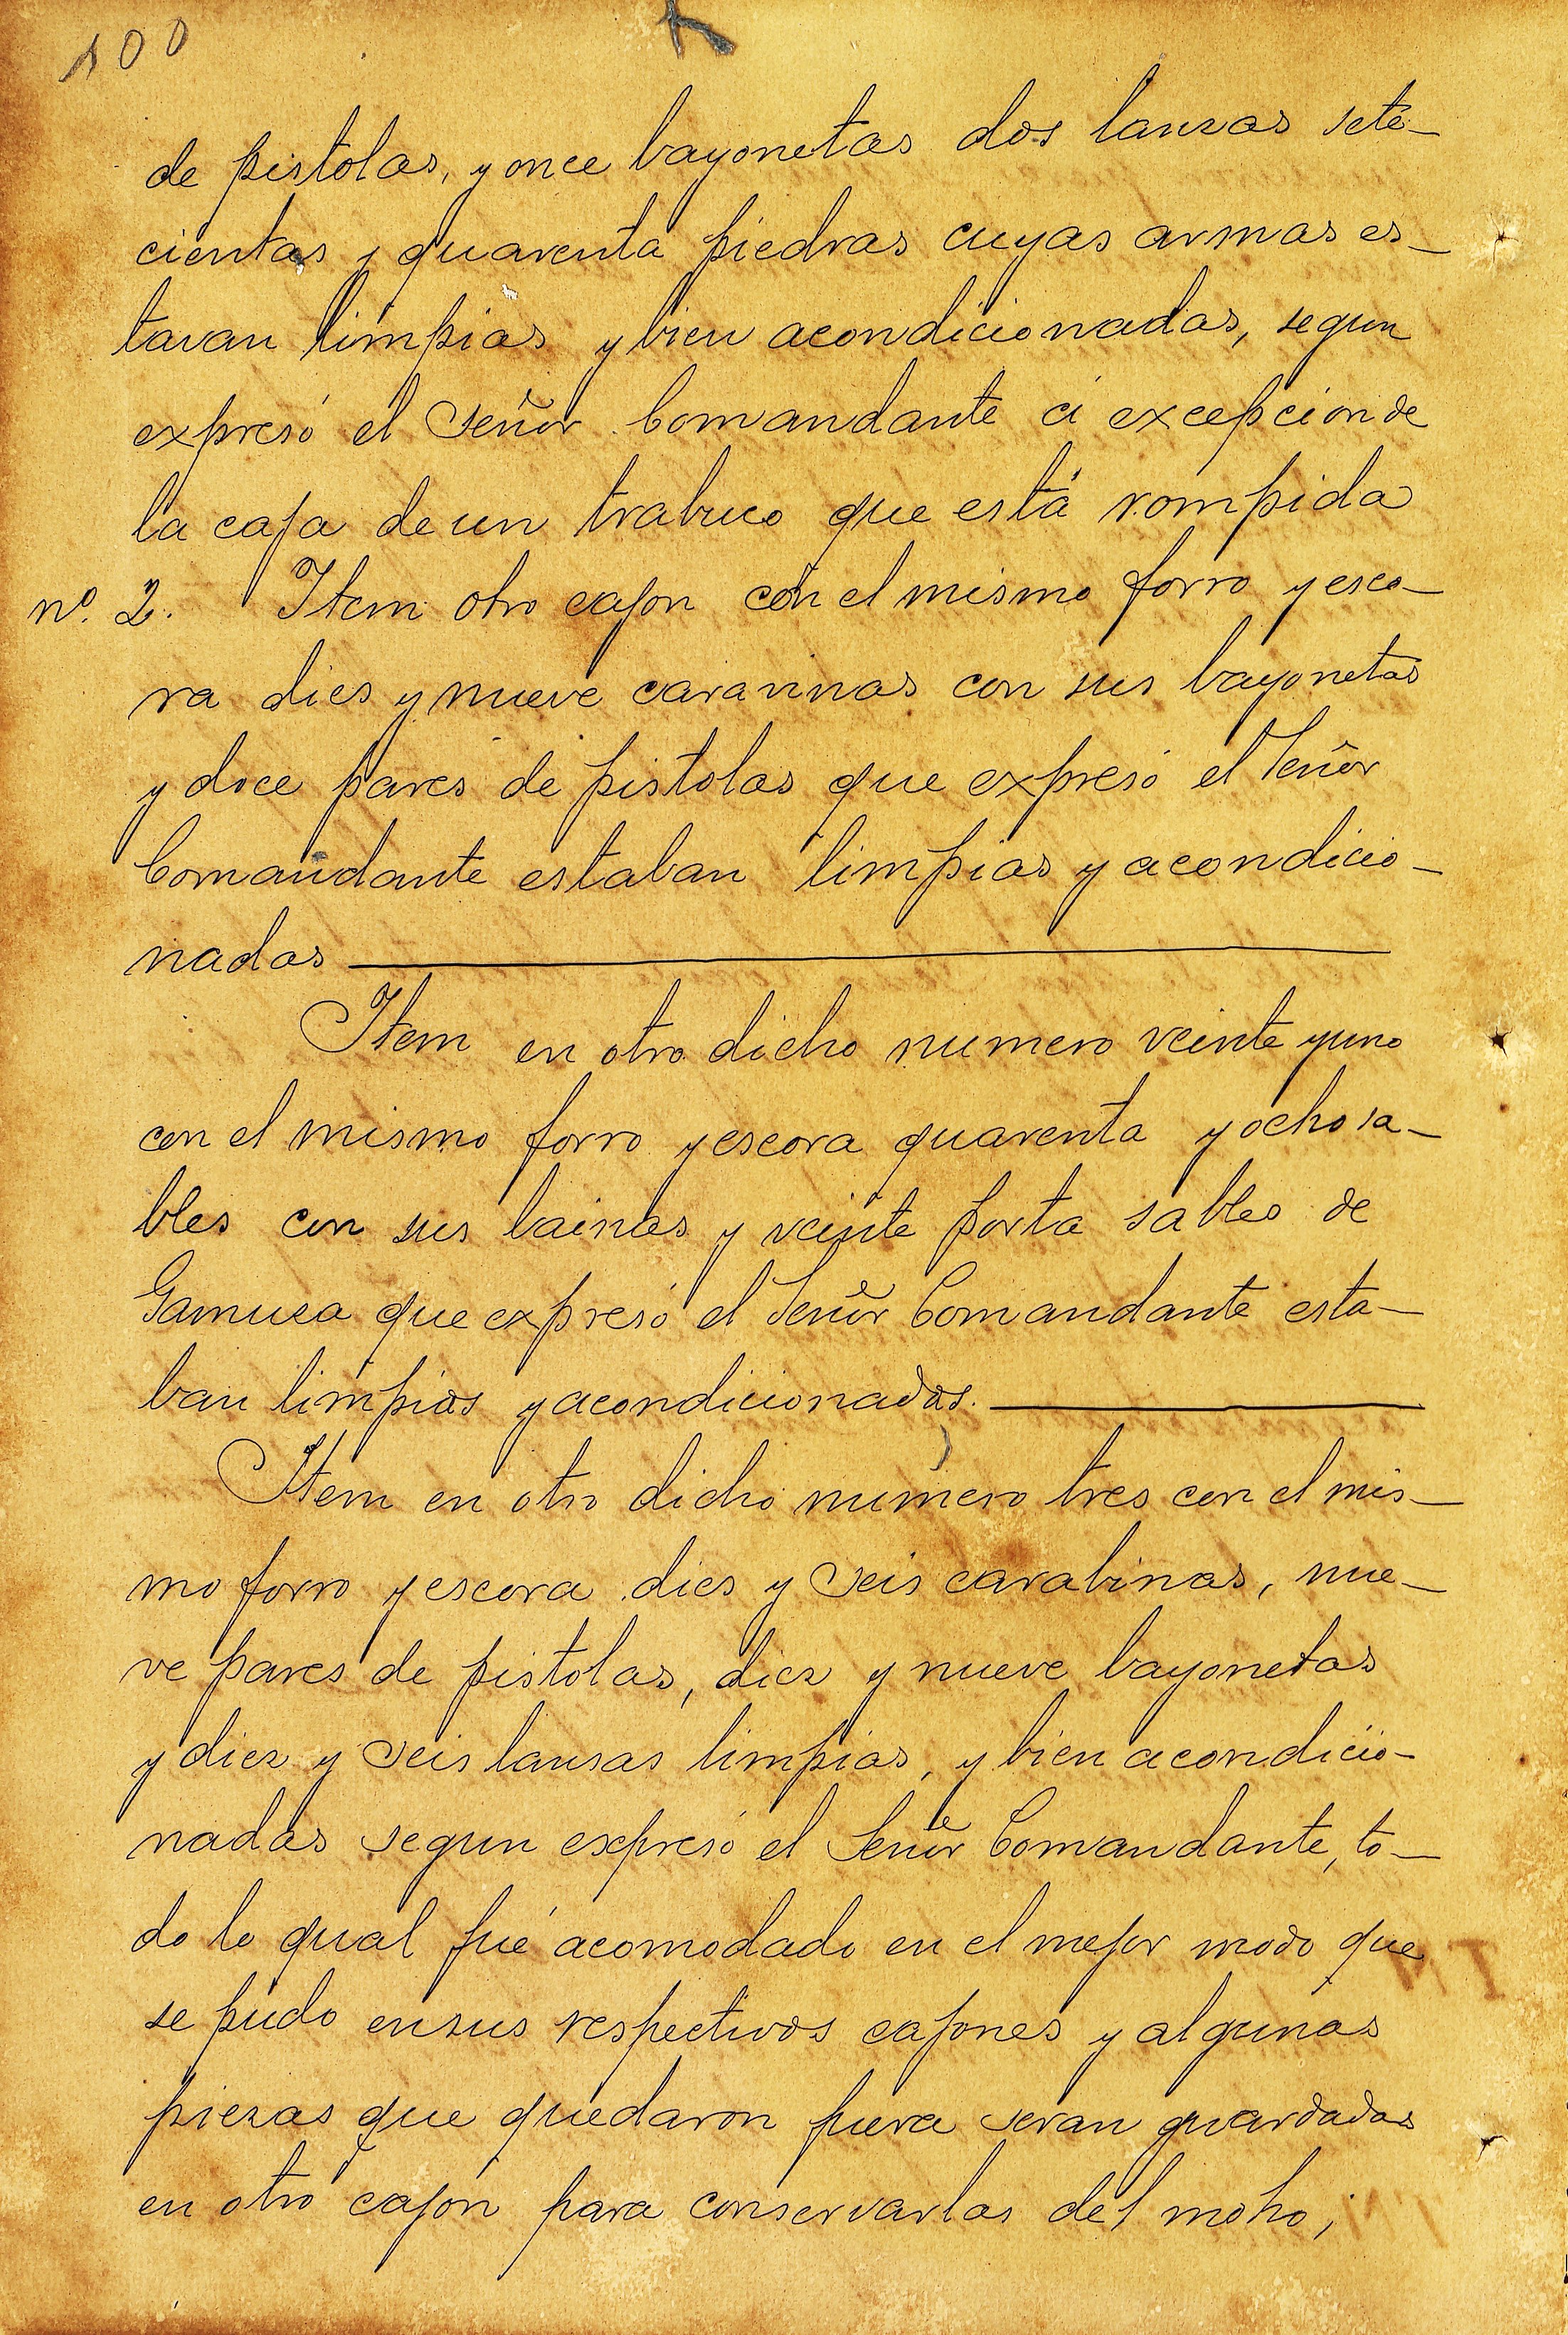 100
de pistolas, y once bayonetas dos lanzas sete-
cientas y quarenta piedras cuyas armas es-
tavan limpias y bien acondicionadas, segun
expresó el Señor Comandante á excepcion de
la caja de un trabuco que está rompida
nº. 2. Item otro cajon con el mismo forro y esco-
ra dies y nueve caravinas con sus bayonetas
y doce pares de pistolas que expresó el Señor
Comandante estaban limpias y acondicio-
nadas
Item en otro dicho numero veinte y uno
con el mismo forro y escora quarenta y ocho sa-
bles con sus bainas y veinte porta sables de
Gamuza que expresó el Señor Comandante esta-
ban limpias y acondicionadas.
Item en otro dicho numero tres con el mis-
mo forro y escora dies y seis carabinas, nue-
ve pares de pistolas, diez y nueve bayonetas
y diez y seis lansas limpias, y bien acondicio-
nadas segun expresó el Señor Comandante, to-
do lo qual fué acomodado en el mejor modo que
se pudo en sus respectivos cajones y algunas
piezas que quedaron fuera seran guardadas
en otro cajon para conservarlas del moho;